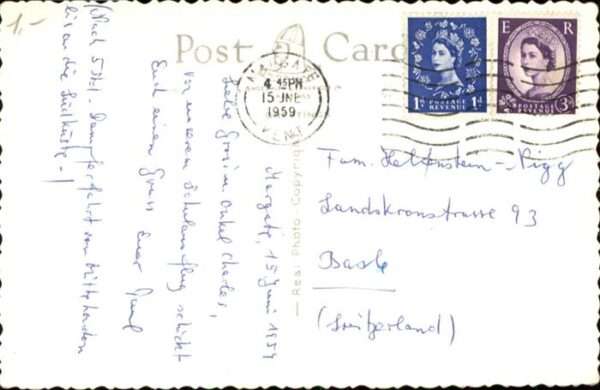 1.-
Post Card
MARGATE
4.45PM
15 JNE
1959
KENT
1D POSTAGE REVENUE 1D
E R
POSTAGE REVENUE 3D
Real Photo Copyright
Margate, 15 Juni 1959
Liebe
Onkel Charles,
Von unserem Schulausflug schickt
Euch einen Gruss Euer Paul
(Nach 5 Std. Dampferfahrt von
bis an die Südküste-!)
Fam. Hellenstein-Rigg
Landskronstrasse 93
Basle
(Switzerland)